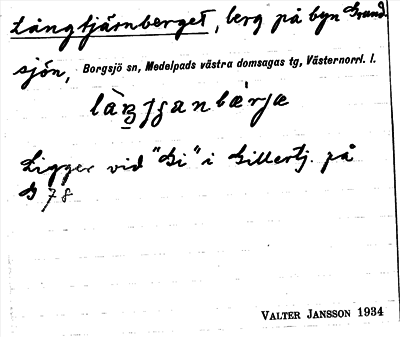 Långtjärnberget, berg på byn Grund-
sjön, Borgsjö sn, Medelpads västra domsagas tg, Västernorrl. l.
Ligger vid "Gi" i Gillertj. på
G 78
VALTER JANSSON 1934